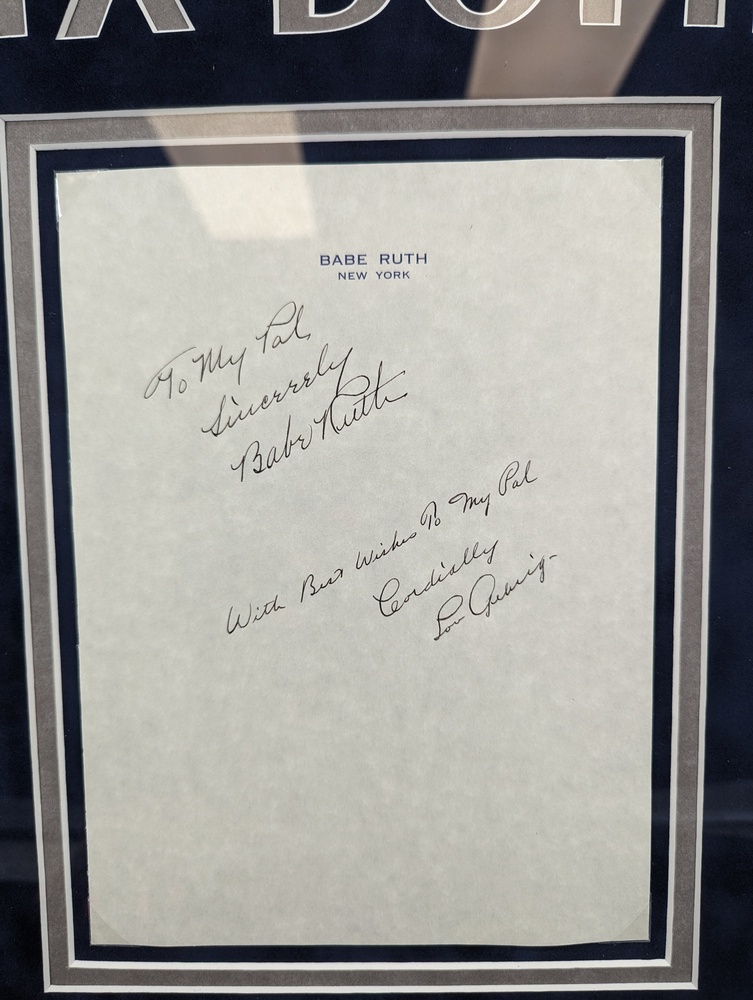 BABE RUTH
NEW YORK
To My Pal
Sincerely
Babe Ruth
With Best Wishes To My Pal
Cordially
Lou Gehrig